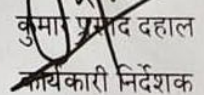 कुमार प्रसाद दहाल
कार्यकारी निर्देशक